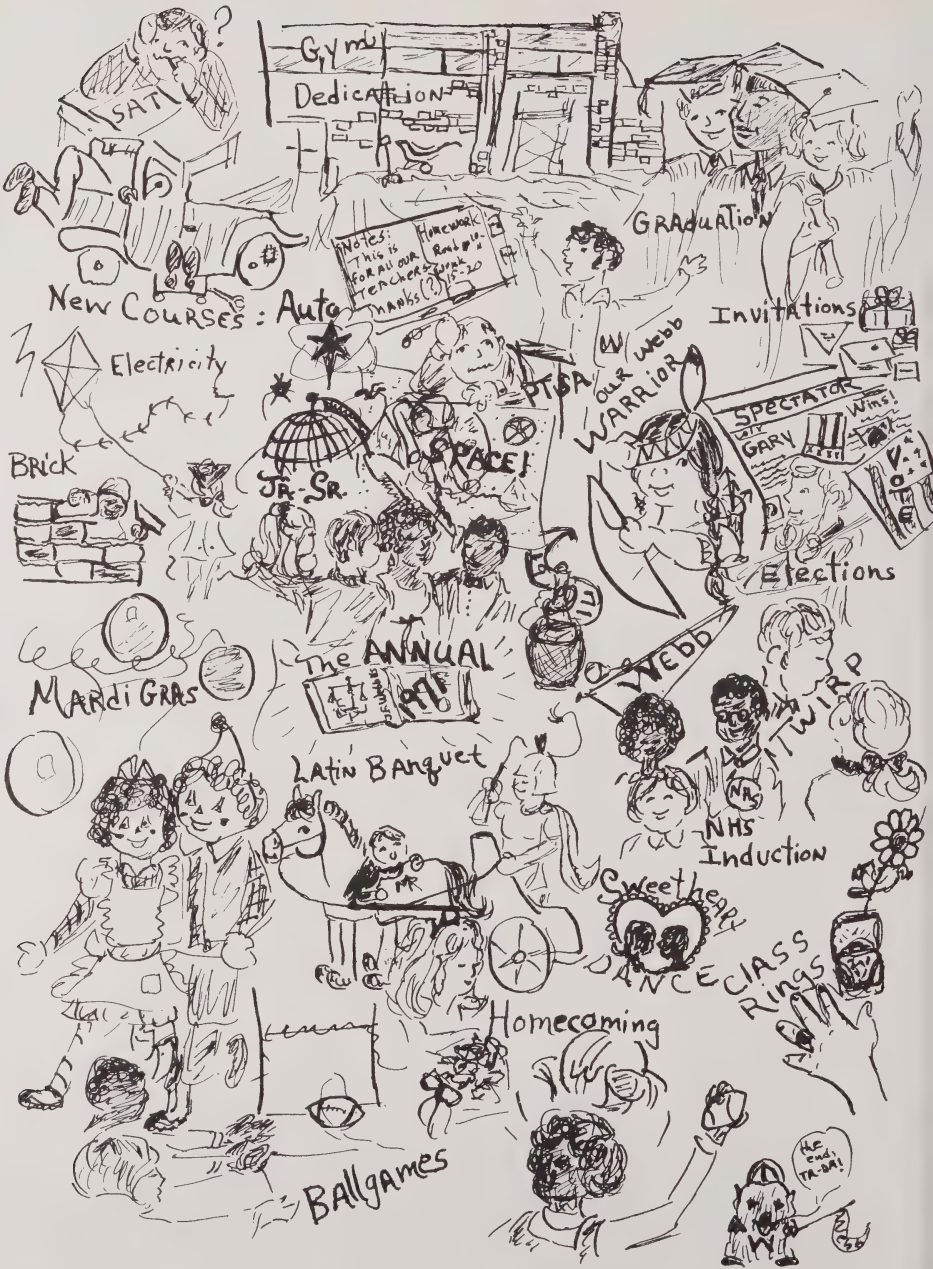 ?
SAT
Gym
Dedication
GRADUATION
Notes:
This is
for all our
Teachers
Thanks(?)
Homework
15-20
New Courses: Auto
Electricity
Brick
Invitations
W
PTSA
OUR Webb
WARRIOR
SPECTATOR
GARY
Wins!
VOTE
Elections
SPACE!
JR.-SR.
The ANNUAL
Webb
Mardi Gras
TWIRP
NHS
NHS
Induction
Latin Banquet
MR
Sweetheart
DANCE
CLASS
Rings
Homecoming
Ballgames
the
end;
TA-DA!
W